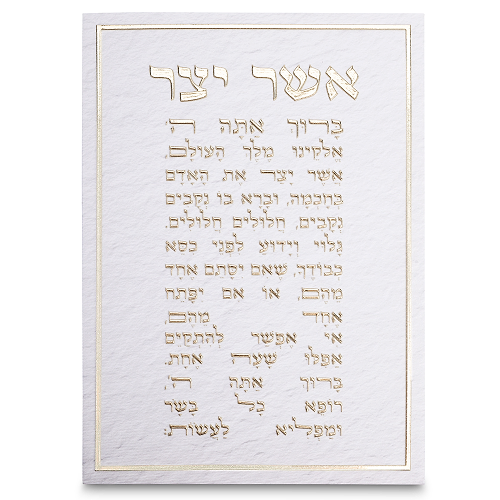 אשר יצר
בָּרוּךְ אַתָּה ה',
אֱלֹקֵינוּ מֶלֶךְ הָעוֹלָם,
אֲשֶׁר יָצַר אֶת הָאָדָם
בְּחָכְמָה, וּבָרָא בוֹ נְקָבִים
נְקָבִים, חֲלוּלִים חֲלוּלִים.
גָּלוּי וְיָדוּעַ לִפְנֵי כִסֵּא
כְבוֹדֶךָ, שֶׁאִם יִסָּתֵם אֶחָד
מֵהֶם, אוֹ אִם יִפָּתֵחַ
אֶחָד מֵהֶם,
אִי אֶפְשַׁר לְהִתְקַיֵּם
אֲפִלּוּ שָׁעָה אֶחָת.
בָּרוּךְ אַתָּה ה',
רוֹפֵא כָל בָּשָׂר
וּמַפְלִיא לַעֲשׂוֹת: